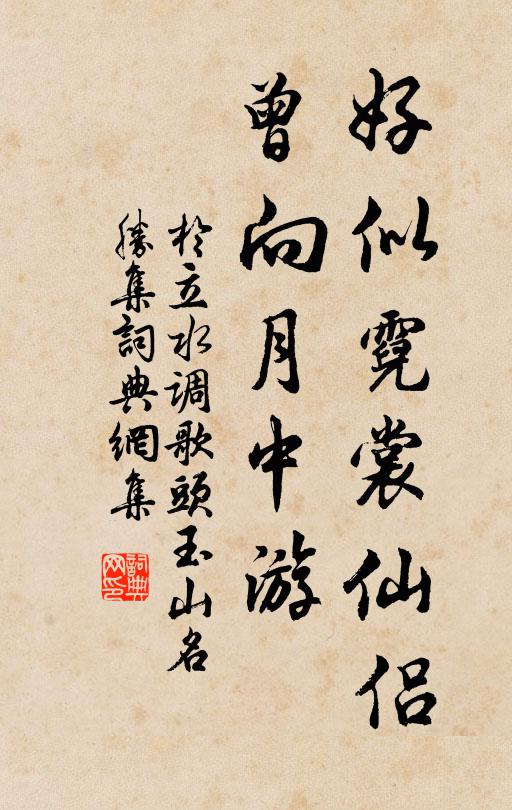 好似霓裳仙侣
曾向月中游
於立水调歌頭玉山名
勝集詞典網集
詞典网印